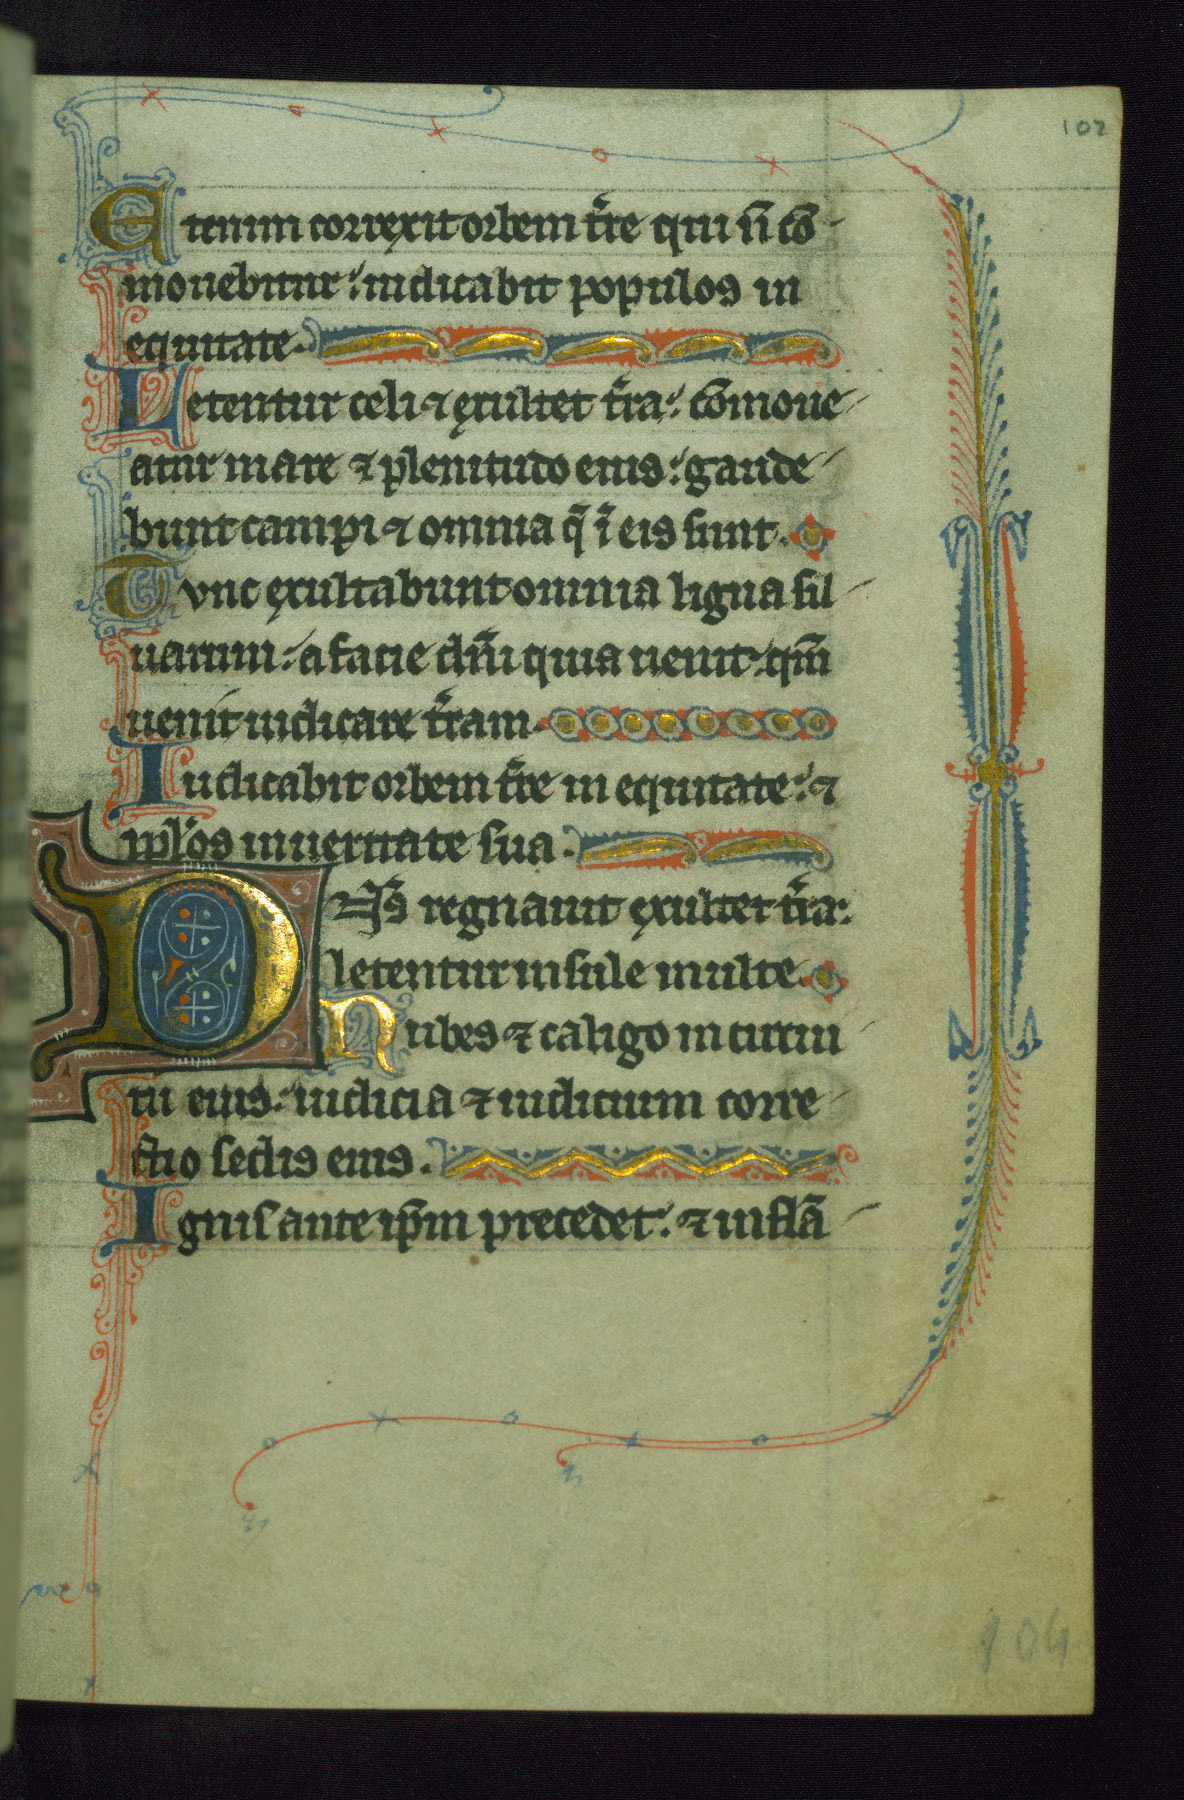 102
Etenim correxit orbem t̄re qui n̄ cō
mouebitur: iudicabit populos in
equitate.
Letentur celi ⁊ exultet t̄ra: cōmoue
atur mare ⁊ plenitudo eius: gaude
bunt campi ⁊ omnia q̄ ī eis sunt.
Tunc exultabunt omnia ligna sil
uarum: a facie dn̄i quia uenit: qm̄
uenit iudicare t̄ram.
Iudicabit orbem t̄re in equitate: ⁊
ipl̄os in ueritate sua.
Dn̄s regnauit exultet t̄ra:
letentur insule multe.
Nubes ⁊ caligo in circui
tu eius: iudicia ⁊ iudicium corre
ctio sedis eius.
Ignis ante ip̄m precedet: ⁊ inflā
104